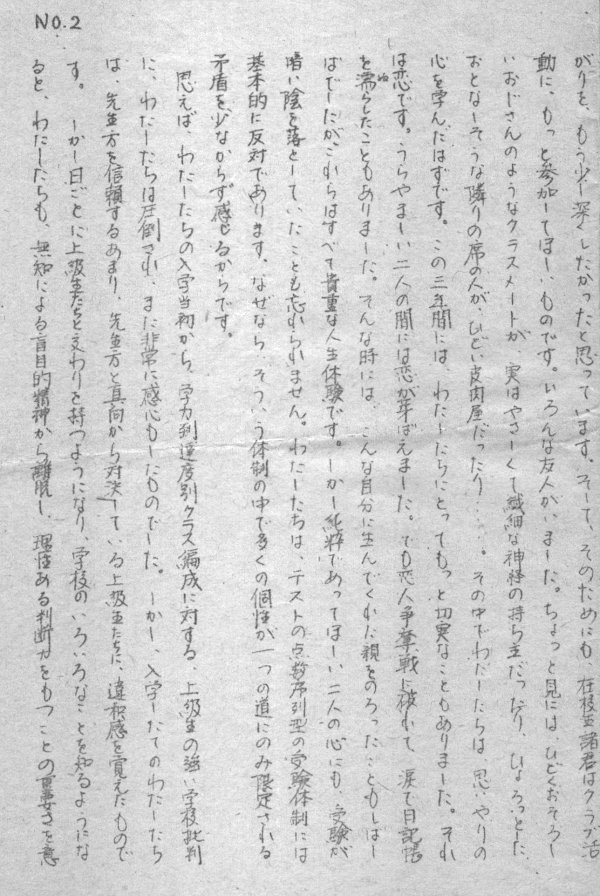 NO.2
がりを、もう少し深くしたかったと思っています。そして、そのためにも、在校生諸君はクラブ活
動に、もっと参加してほしいものです。いろんな友人がいました。ちょっと見には、ひどくおそろし
いおじさんのようなクラスメートが、実はやさしくて繊細な神経の持ち主だったり、ひょろっとした
おとなしそうな隣りの席の人が、ひどい皮肉屋だったり……。その中でわたしたちは、思いやりの
心を学んだはずです。この三年間には、わたしたちにとってもっと切実なこともありました。それ
は恋です。うらやましい二人の間には恋が芽ばえました。でも恋人争奪戦に破れて、涙で日記帳
を濡らしたこともありました。そんな時には、こんな自分に生んでくれた親をのろったこともしばし
ばでしたがこれらはすべて貴重な人生体験です。しかし純粋であってほしい二人の心にも、受験が
暗い陰を落としていたことも忘れられません。わたしたちは、テストの点数序列型の受験体制には
基本的に反対であります。なぜなら、そういう体制の中で多くの個性が一つの道にのみ限定される
矛盾を少なからず感じるからです。
思えば、わたしたちの入学当初から、学力到達度別クラス編成に対する、上級生の強い学校批判
に、わたしたちは圧倒され、また非常に感心もしたものでした。しかし、入学したてのわたしたち
は、先生方を信頼するあまり、先生方と真向から対決している上級生たちに、違和感を覚えたもので
す。しかし日ごとに上級生たちと交わりを持つようになり、学校のいろいろなことを知るようにな
ると、わたしたちも、無知による盲目的精神から離脱し、理性ある判断力をもつことの重要さを意